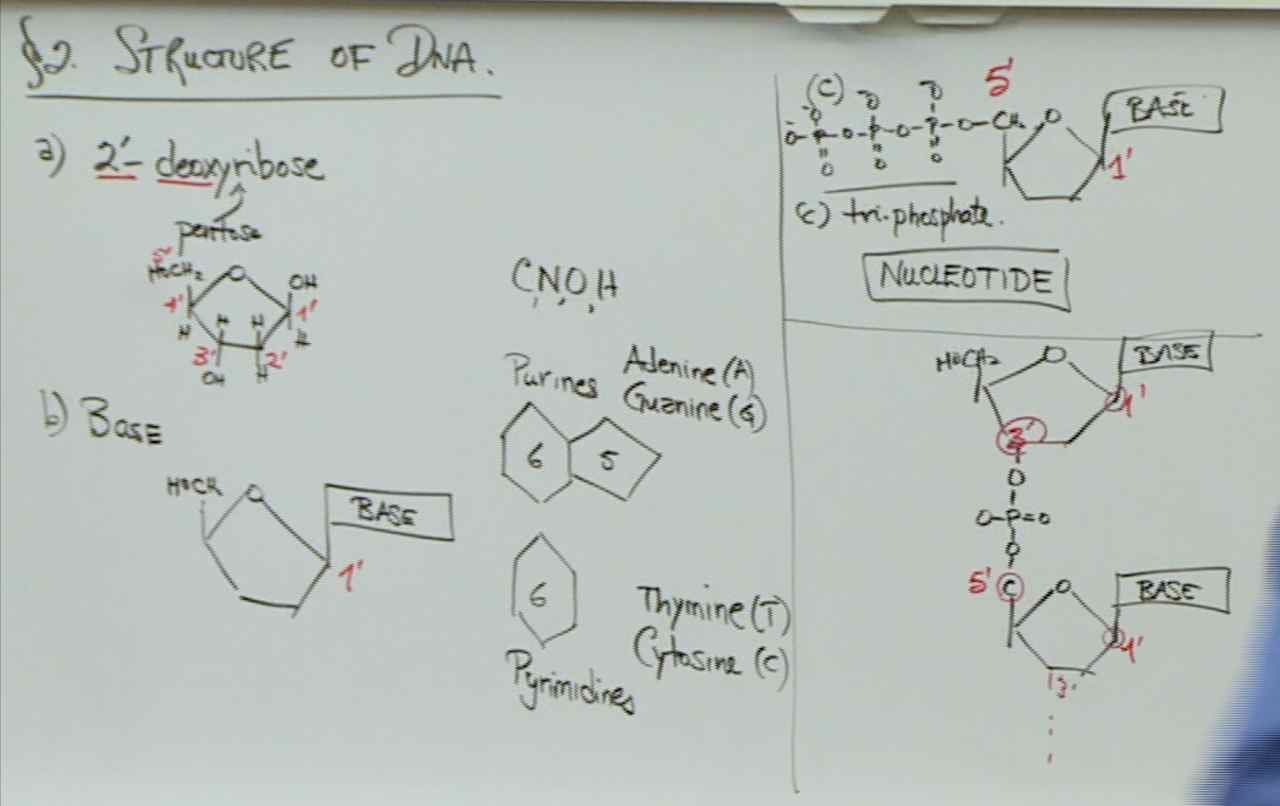 §2. STRUCTURE OF DNA.
a) 2'- deoxyribose
pentose
5'
HOCH2 O OH
4' 1'
H H H H
3' 2'
OH H
b) BASE
HOCH O
BASE
1'
C, N, O, H
Purines Adenine (A)
Guanine (G)
6 5
6
Thymine (T)
Cytosine (C)
Pyrimidines
(C) 5'
O- O- O-
O-P-O-P-O-P-O-CH2 O BASE
O O O
1'
c) tri-phosphate.
NUCLEOTIDE
HOCH2 O BASE
1'
3'
O
O-P=O
O
5' C O BASE
1'
3'